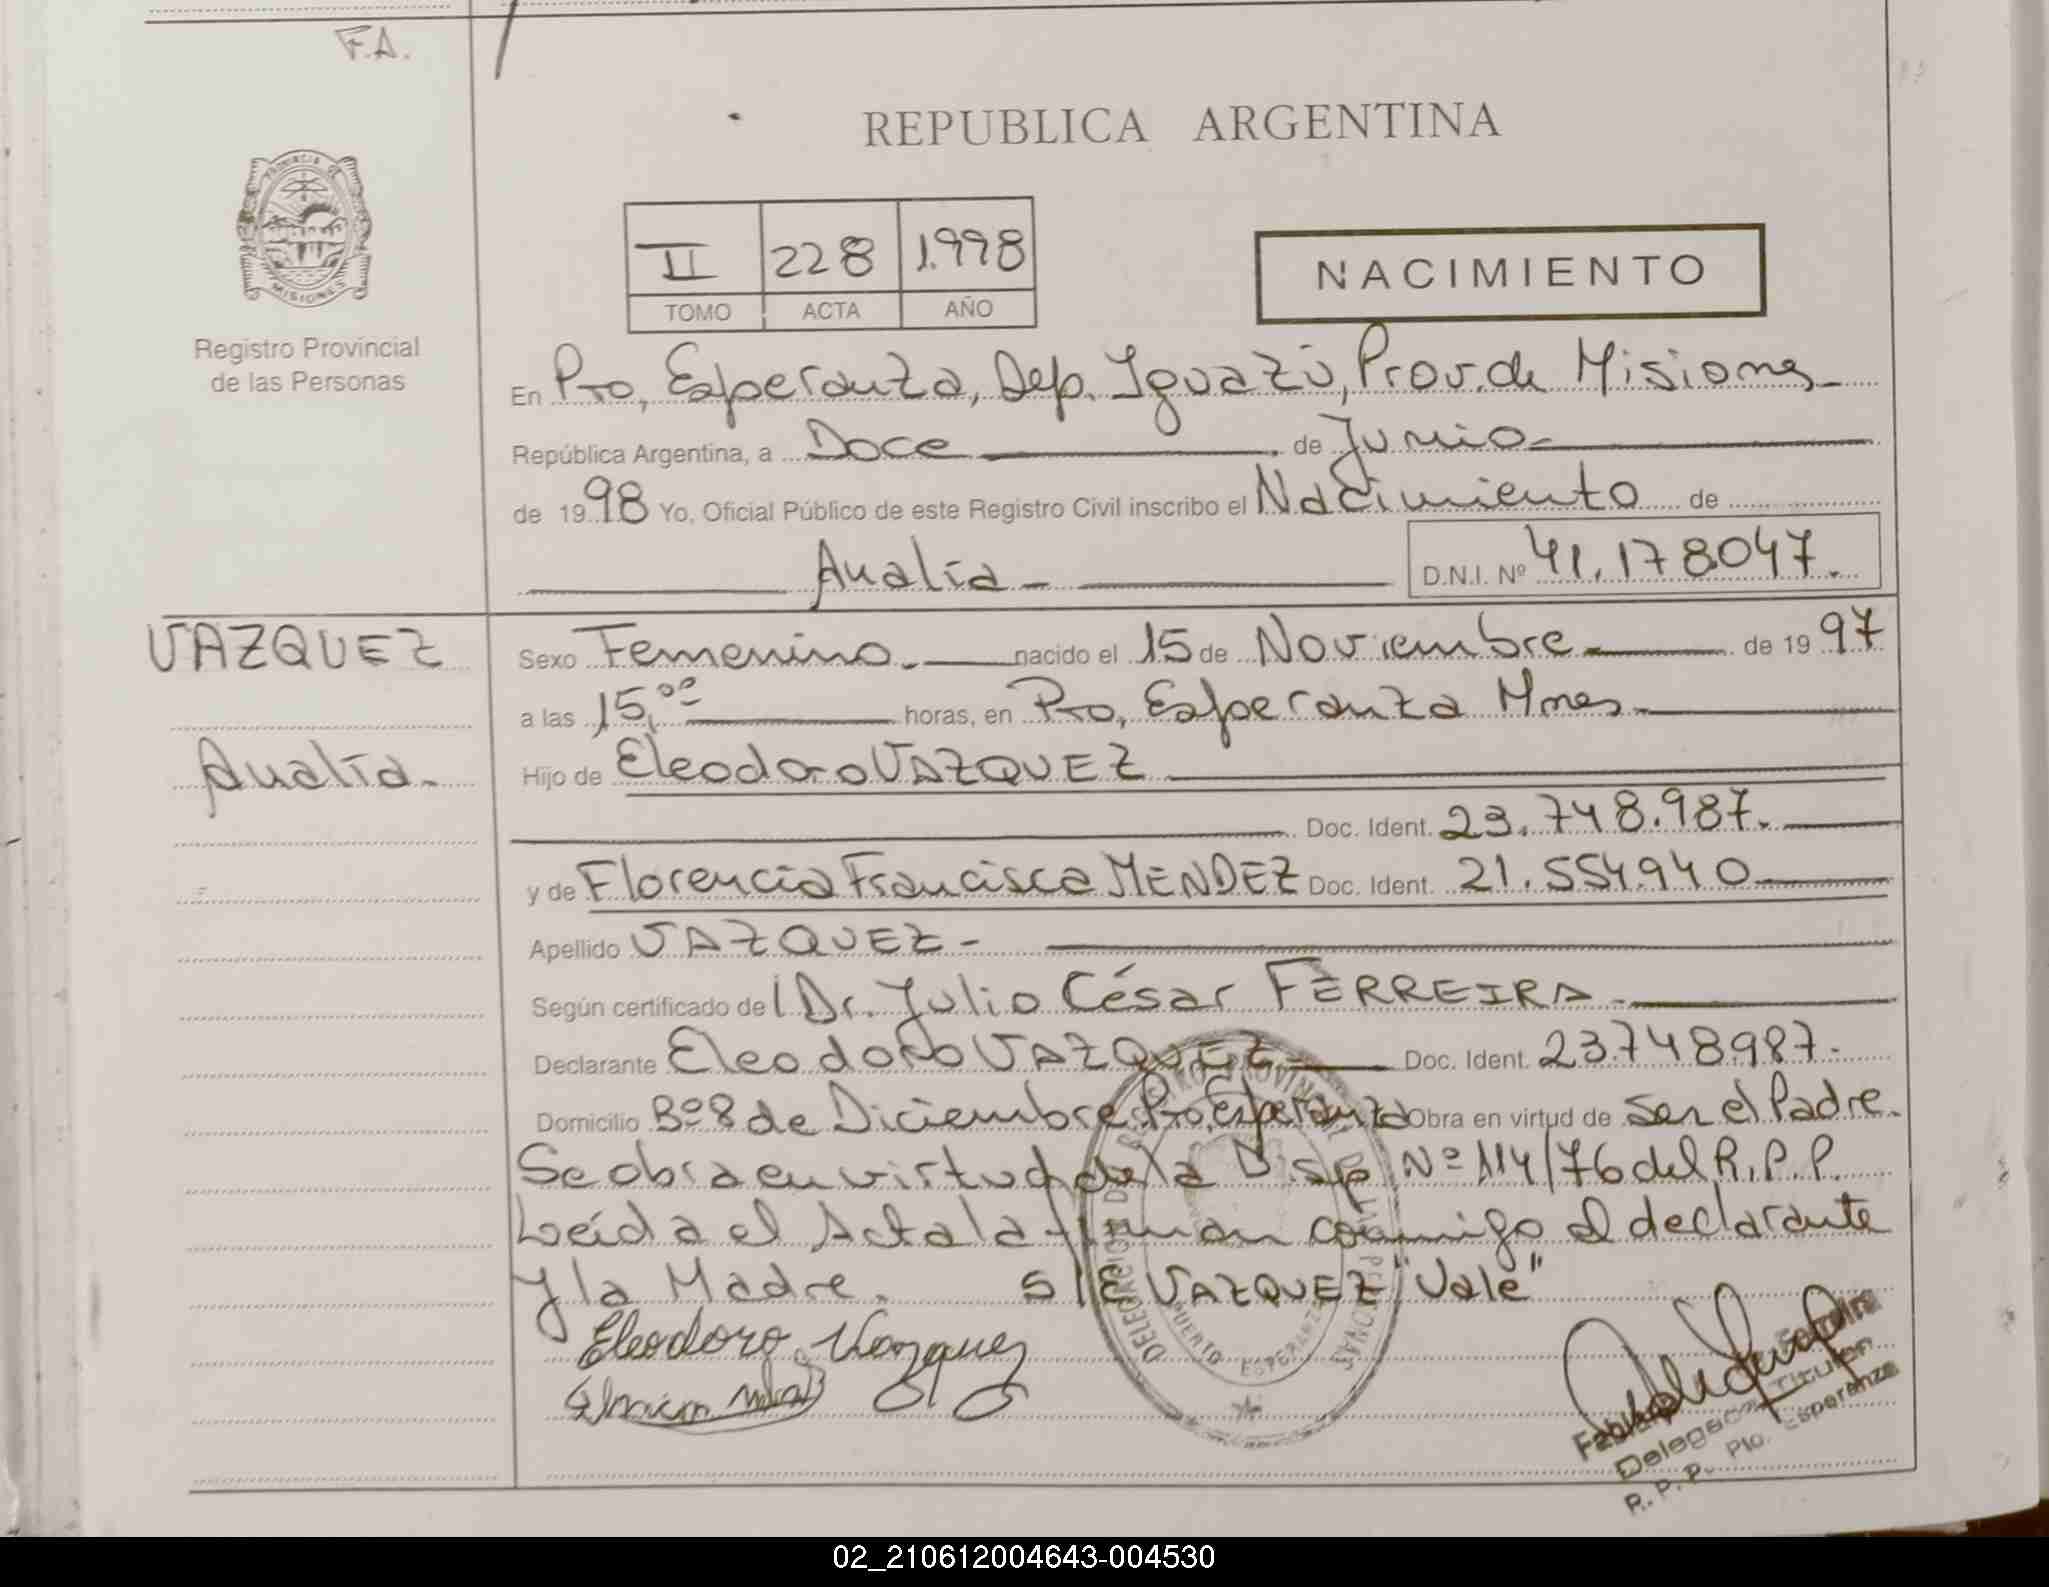 F.A.
REPUBLICA ARGENTINA
PROVINCIA DE
MISIONES
Registro Provincial
de las Personas
II 228 1.998
TOMO ACTA AÑO
NACIMIENTO
En Pto, Esperanza, Dep. Iguazú, Prov. de Misiones
República Argentina, a Doce de Junio
de 1998 Yo, Oficial Público de este Registro Civil inscribo el Nacimiento de
Analía
D.N.I. Nº 41.178047.
VAZQUEZ
Analía
Sexo Femenino. nacido el 15 de Noviembre de 1997
a las 15,00 horas, en Pto, Esperanza Mnes
Hijo de Eleodoro VAZQUEZ
Doc. Ident. 23.748.987.
y de Florencia Francisca MENDEZ Doc. Ident. 21.554.940
Apellido VAZQUEZ
Según certificado de Dr. Julio César FERREIRA
Declarante Eleodoro VAZQUEZ Doc. Ident. 23.748987.
Domicilio Bº 8 de Diciembre Pto, Esperanza Obra en virtud de Ser el Padre.
Se obra en virtud de la Disp Nº 114/76 del R.P.P.
Leída el Acta la firman conmigo el declarante
y la Madre. S/E VAZQUEZ "Vale"
Eleodoro Vazquez
PUERTO ESPERANZA
Delegada Titular
R.P.P. Pto. Esperanza
02_210612004643-004530